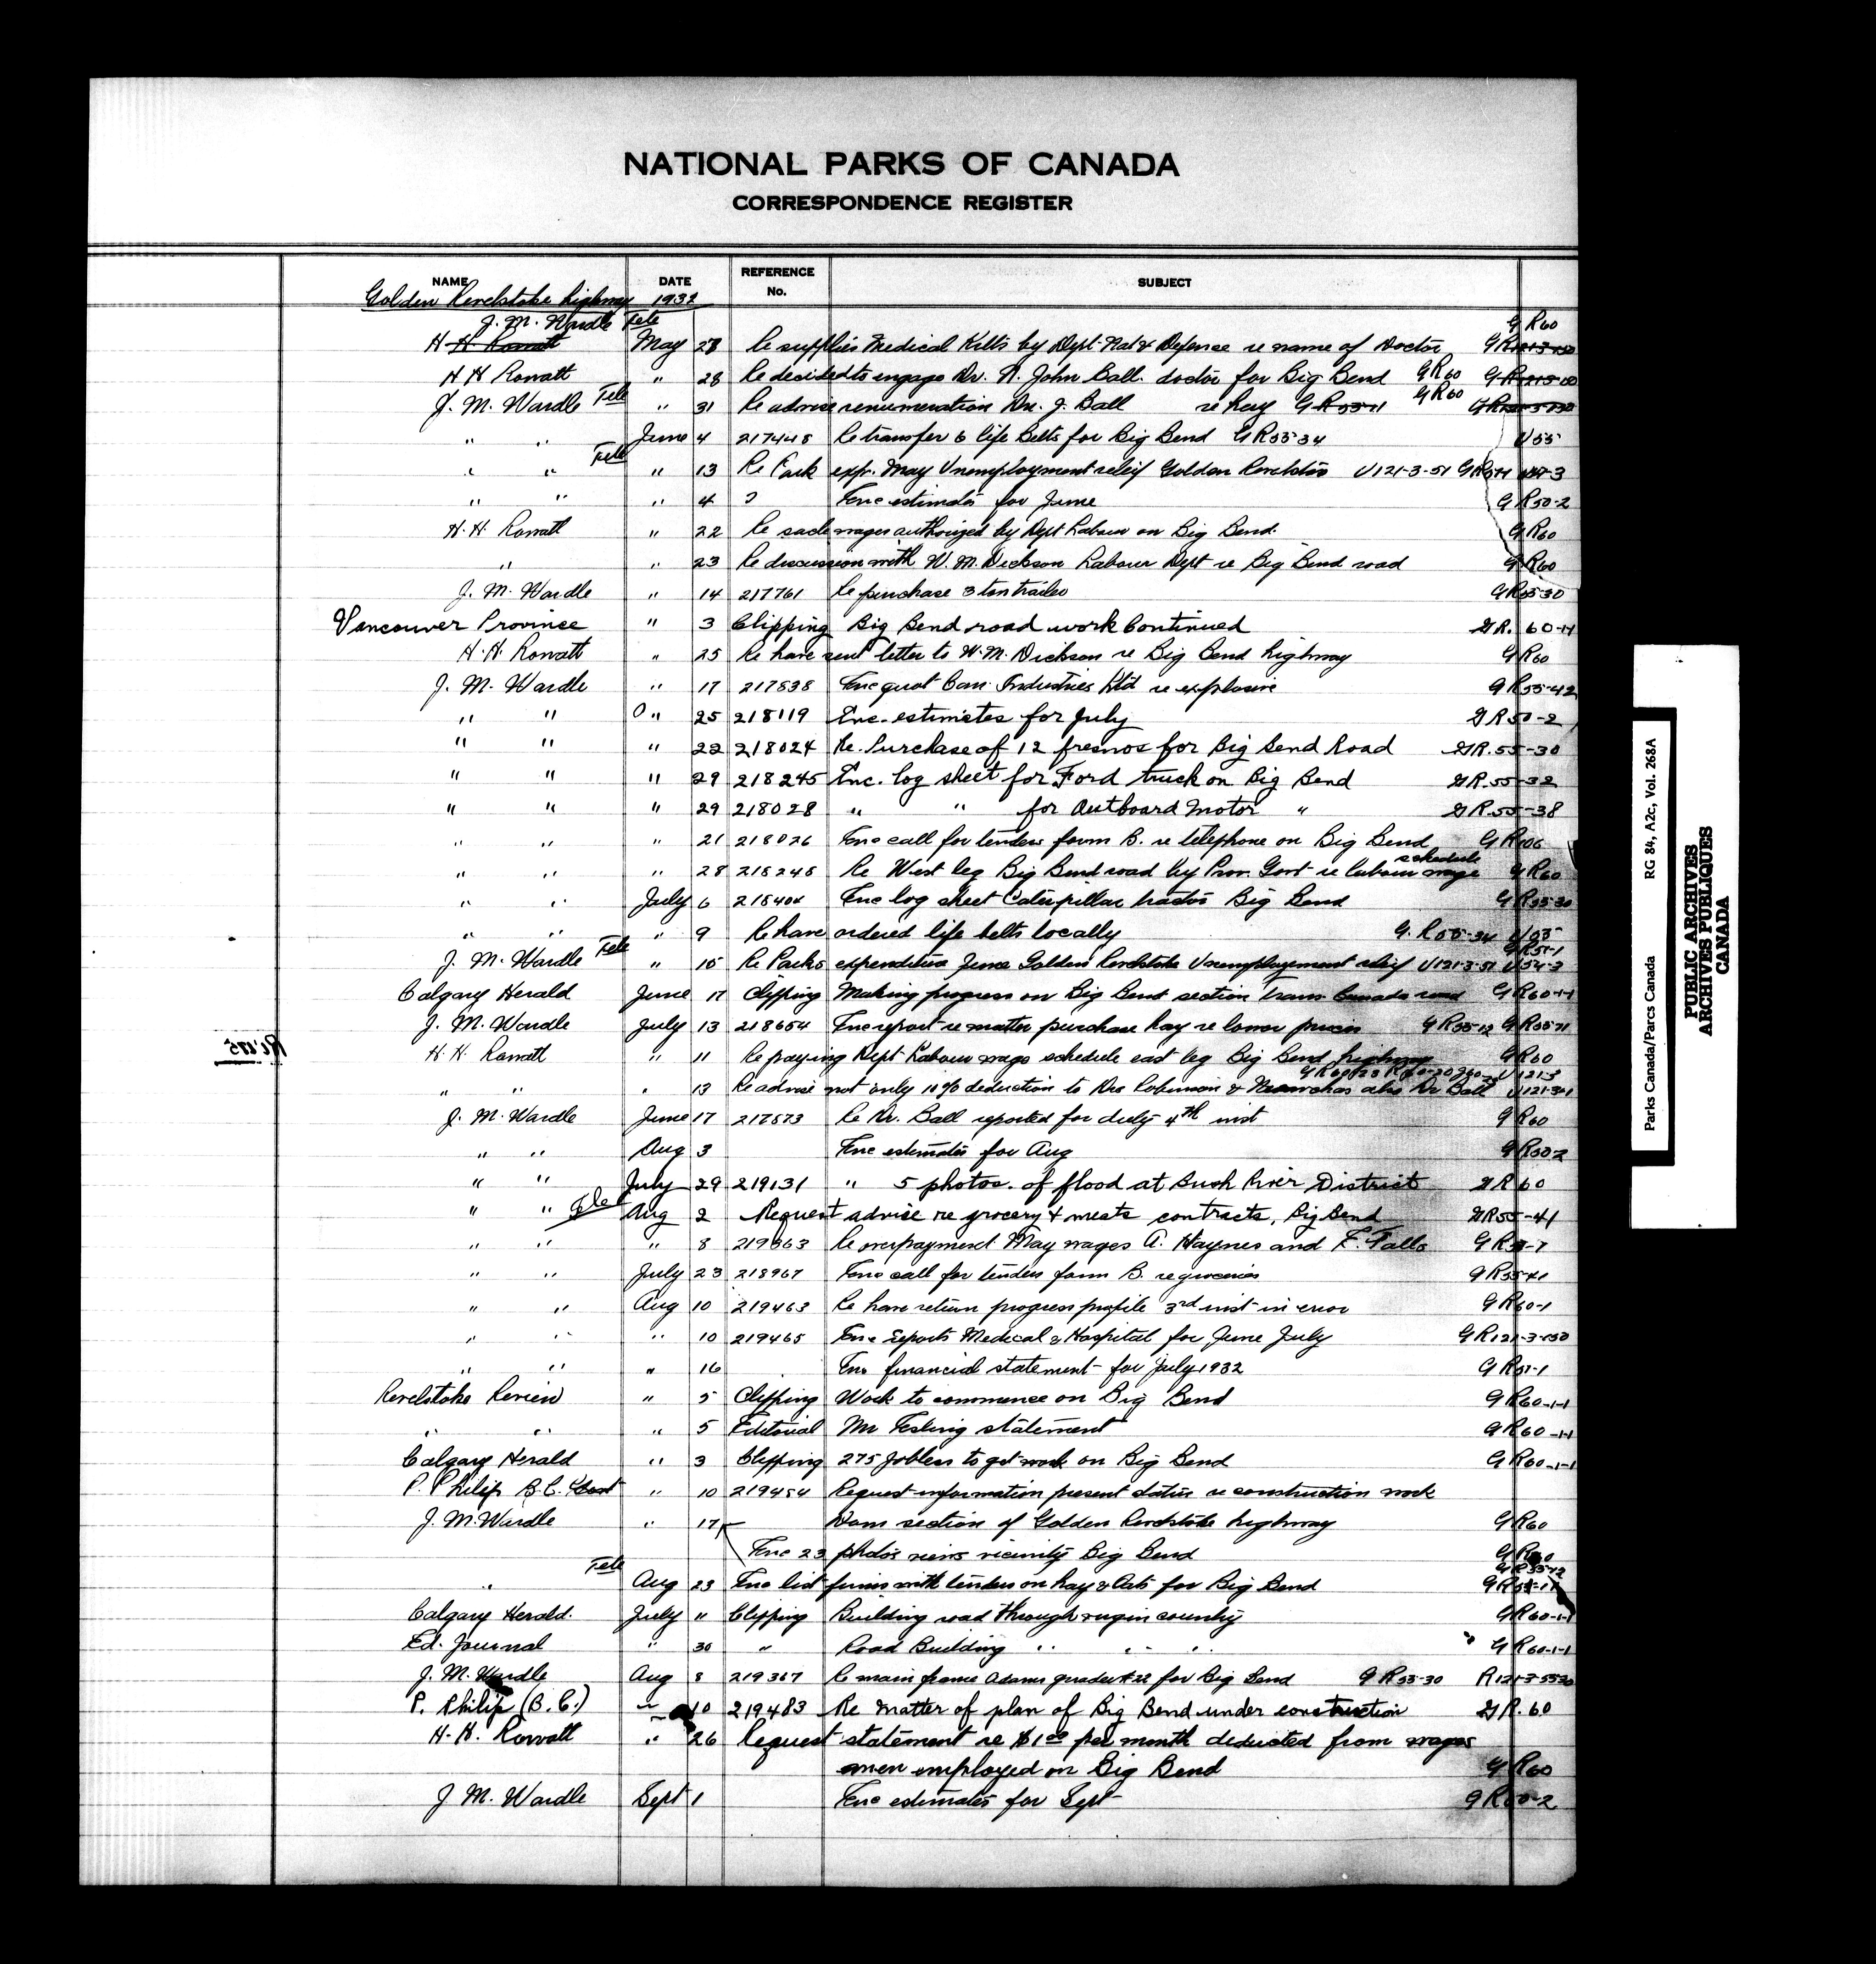 NATIONAL PARKS OF CANADA
CORRESPONDENCE REGISTER
NAME DATE REFERENCE No. SUBJECT
Golden Revelstoke highway 1932
J. M. Wardle Tele GR60
H H Rowatt May 28 Re supplies Medical Kitts by Dept. Nat'l Defense re name of Doctor
H H Rowatt " 28 Re decided to engage Dr. N. John Ball. doctor for Big Bend GR60
J. M. Wardle Tele " 31 Re advise renumeration Dr. J. Ball re Hay GR55-11 GR60
" " June 4 217448 Re transfer 6 life Belts for Big Bend GR55-34 U55
" " Tele " 13 Re Park exp. May Unemployment relief Golden Revelstoke U121-3-51
" " " 4 ? Enc estimates for June GR50-2
H. H. Rowatt " 22 Re wages authorized by Dept Labour on Big Bend. GR60
" " 23 Re discussion with W. M. Dickson Labour Dept re Big Bend road GR60
J. M. Wardle " 14 217761 Re purchase 3 ton trailer GR55-30
Vancouver Province " 3 Clipping Big Bend road work Continued GR. 60-1-1
H. H. Rowatt " 25 Re have sent letter to W. M. Dickson re Big Bend highway GR60
J. M. Wardle " 17 217838 Enc quot Can. Industries Ltd re explosive GR55-42
" " " 25 218119 Enc. estimates for July GR50-2
" " " 22 218024 Re. Purchase of 12 fresnos for Big Bend Road GR.55-30
" " " 29 218245 Enc. log sheet for Ford truck on Big Bend GR.55-32
" " " 29 218028 " " for Outboard Motor " GR.55-38
" " " 21 218026 Enc call for tenders form B. re telephone on Big Bend GR106
schedule
" " " 28 218248 Re West leg Big Bend road by Prov. Govt re labour wage GR60
" " July 6 218404 Enc log sheet Caterpillar tractor Big Bend GR55-30
" " " 9 Re have ordered life belts locally G.R55-34 U55
GR51-1
J. M. Wardle Tele " 15 Re Parks expenditure June Golden Revelstoke Unemployement relief U121-3-51 U54-3
Calgary Herald June 17 Clipping Making progress on Big Bend section trans-Canada road GR60-1-1
J. M. Wardle July 13 218654 Enc report re matter purchase hay re lower prices GR55-12 GR55-11
H. H. Rowatt " 11 Re paying Dept Labour wage schedule east leg Big Bend highway GR60
" " " 13 Re advise not only 10% deduction to Drs Robinson & also Dr Ball
J. M. Wardle June 17 217873 Re Dr. Ball reported for duty 4th inst GR60
" " Aug 3 Enc estimates for Aug GR50-2
" " July 29 219131 " 5 photos. of flood at Bush River District GR60
" " Tele Aug 2 Request advise re grocery & meats contracts, Big Bend GR55-41
" " " 8 219363 Re overpayment May wages A. Haynes and F. Falls
" " July 23 218967 Enc call for tenders form B. re groceries GR55-41
" " Aug 10 219463 Re have return progress profile 3rd inst in error GR60-1
" " " 10 219465 Enc reports Medical & Hospital for June July GR121-3-150
" " " 16 Enc financial statement for July 1932 GR51-1
Revelstoke Review " 5 Clipping Work to commence on Big Bend GR60-1-1
" " " 5 Editorial Mr statement GR60-1-1
Calgary Herald " 3 Clipping 275 Jobless to get work on Big Bend GR60-1-1
P. Philip B.C. Govt " 10 219484 Request information present status re construction work
J. M. Wardle " 17 section of Golden Revelstoke highway GR60
Enc 23 photos views vicinity Big Bend
GR55-12
" Tele Aug 23 Enc list firms with tenders on hay & Oats for Big Bend
Calgary Herald. July " Clipping Building road through country GR60-1-1
Ed. Journal " 30 " Road Building " " " GR60-1-1
J. M. Wardle Aug 8 219367 Re main frame Adams grader #22 for Big Bend GR55-30
P. Philip (B. C.) " 10 219483 Re matter of plan of Big Bend under construction GR. 60
H. H. Rowatt " 26 Request statement re $1.00 per month deducted from wages
men employed on Big Bend GR60
J M. Wardle Sept 1 Enc estimates for Sept GR50-2
Parks Canada/Parcs Canada RG 84, A2c, Vol. 268A
PUBLIC ARCHIVES
ARCHIVES PUBLIQUES
CANADA